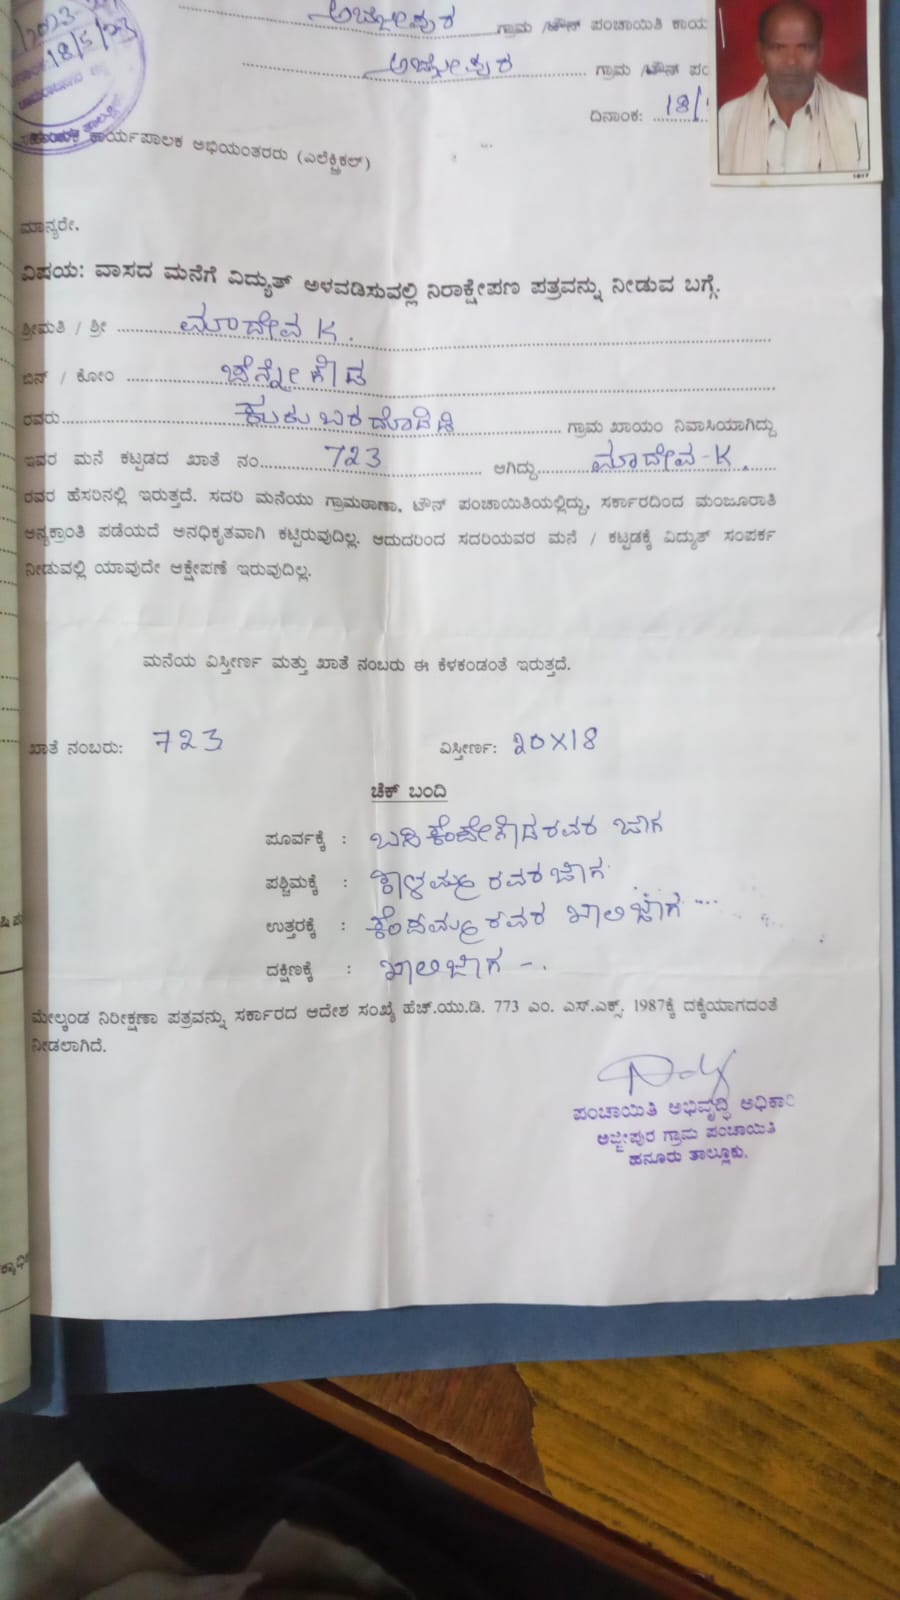 18/5/23
ಅಜ್ಜೀಪುರ ಗ್ರಾಮ /ಟೌನ್ ಪಂಚಾಯಿತಿ
ಅಜ್ಜೀಪುರ ಗ್ರಾಮ /ಟೌನ್
ದಿನಾಂಕ: 18/
ಕಾರ್ಯಪಾಲಕ ಅಭಿಯಂತರರು (ಎಲೆಕ್ಟ್ರಿಕಲ್)
ಮಾನ್ಯರೇ.
ವಿಷಯ: ವಾಸದ ಮನೆಗೆ ವಿದ್ಯುತ್ ಅಳವಡಿಸುವಲ್ಲಿ ನಿರಾಕ್ಷೇಪಣ ಪತ್ರವನ್ನು ನೀಡುವ ಬಗ್ಗೆ.
ಶ್ರೀಮತಿ / ಶ್ರೀ ಮಾದೇವ K.
ಬಿನ್ / ಕೋಂ
ರವರು ಗ್ರಾಮ ಖಾಯಂ ನಿವಾಸಿಯಾಗಿದ್ದು
ಇವರ ಮನೆ ಕಟ್ಟಡದ ಖಾತೆ ನಂ. 723 ಆಗಿದ್ದು ಮಾದೇವ-K.
ರವರ ಹೆಸರಿನಲ್ಲಿ ಇರುತ್ತದೆ. ಸದರಿ ಮನೆಯು ಗ್ರಾಮಠಾಣಾ, ಟೌನ್ ಪಂಚಾಯಿತಿಯಲ್ಲಿದ್ದು, ಸರ್ಕಾರದಿಂದ ಮಂಜೂರಾತಿ
ಅನ್ಯಕ್ರಾಂತಿ ಪಡೆಯದೆ ಅನಧಿಕೃತವಾಗಿ ಕಟ್ಟಿರುವುದಿಲ್ಲ. ಆದುದರಿಂದ ಸದರಿಯವರ ಮನೆ / ಕಟ್ಟಡಕ್ಕೆ ವಿದ್ಯುತ್ ಸಂಪರ್ಕ
ನೀಡುವಲ್ಲಿ ಯಾವುದೇ ಆಕ್ಷೇಪಣೆ ಇರುವುದಿಲ್ಲ.
ಮನೆಯ ವಿಸ್ತೀರ್ಣ ಮತ್ತು ಖಾತೆ ನಂಬರು ಈ ಕೆಳಕಂಡಂತೆ ಇರುತ್ತದೆ.
ಖಾತೆ ನಂಬರು: 723 ವಿಸ್ತೀರ್ಣ: 20X18
ಚೆಕ್ ಬಂದಿ
ಪೂರ್ವಕ್ಕೆ : ರವರ ಜಾಗ
ಪಶ್ಚಿಮಕ್ಕೆ : ಕಾಳಮ್ಮ ರವರ ಜಾಗ
ಉತ್ತರಕ್ಕೆ : ಕೆಂಪಮ್ಮ ರವರ ಖಾಲಿ ಜಾಗ
ದಕ್ಷಿಣಕ್ಕೆ : ಖಾಲಿ ಜಾಗ -.
ಮೇಲ್ಕಂಡ ನಿರೀಕ್ಷಣಾ ಪತ್ರವನ್ನು ಸರ್ಕಾರದ ಆದೇಶ ಸಂಖ್ಯೆ ಹೆಚ್.ಯು.ಡಿ. 773 ಎಂ. ಎಸ್.ಎಕ್ಸ್. 1987ಕ್ಕೆ ದಕ್ಕೆಯಾಗದಂತೆ
ನೀಡಲಾಗಿದೆ.
ಪಂಚಾಯಿತಿ ಅಭಿವೃದ್ಧಿ ಅಧಿಕಾ
ಅಜ್ಜೀಪುರ ಗ್ರಾಮ ಪಂಚಾಯಿತಿ
ಹನೂರು ತಾಲ್ಲೂಕು.